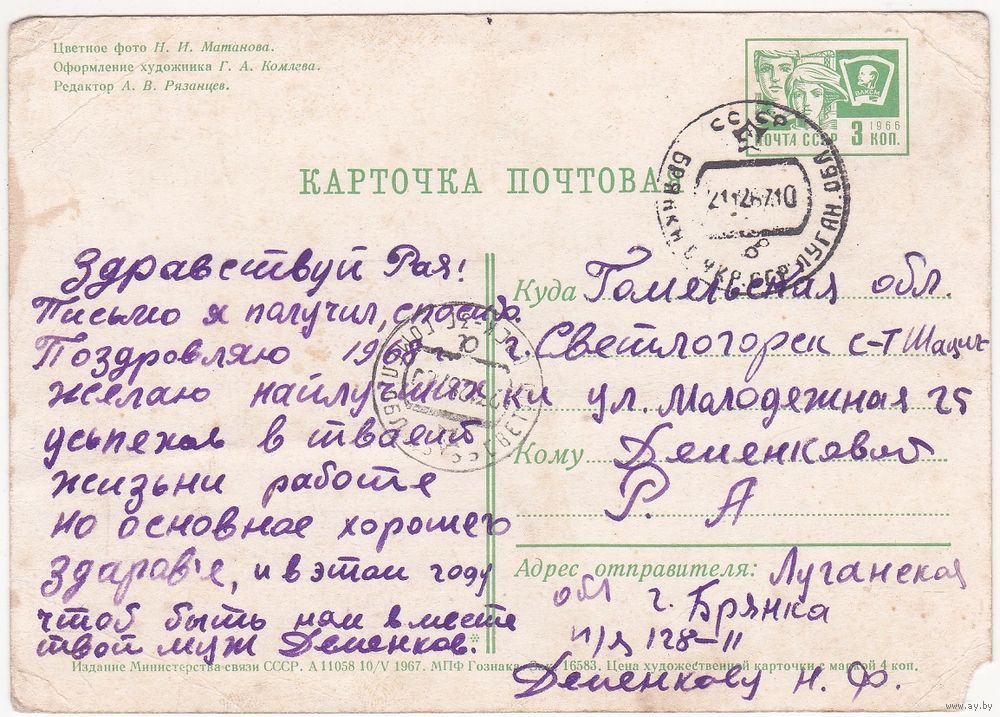 Цветное фото Н. И. Матанова.
Оформление художника Г. А. Комлева.
Редактор А. В. Рязанцев.
ВЛКСМ
1966
ПОЧТА СССР 3 КОП.
КАРТОЧКА ПОЧТОВАЯ
СССР
УКР. ССР ЛУГАН. ОБЛ
Здравствуй Рая!
Письмо я получил, спасибо.
Поздровляю 1968 г.
желаю найлучших
усьпехов в тваей
жизьни работе
но основное хорошего
здарав'е, и в этом году
чтоб быть нам вместе
твой муж Деменков.
Куда Гомельская обл.
г. Светлогорск с-т Шацил-
ки ул. Молодежная 25
Кому Деменковой
Р. А
Адрес отправителя: Луганская
обл г. Брянка
п/я 128-11
Деменкову Н. Ф.
Издание Министерства связи СССР. А 11058 10/V 1967. МПФ Гознака. Зак. 16583. Цена художественной карточки с маркой 4 коп.
www.ay.by